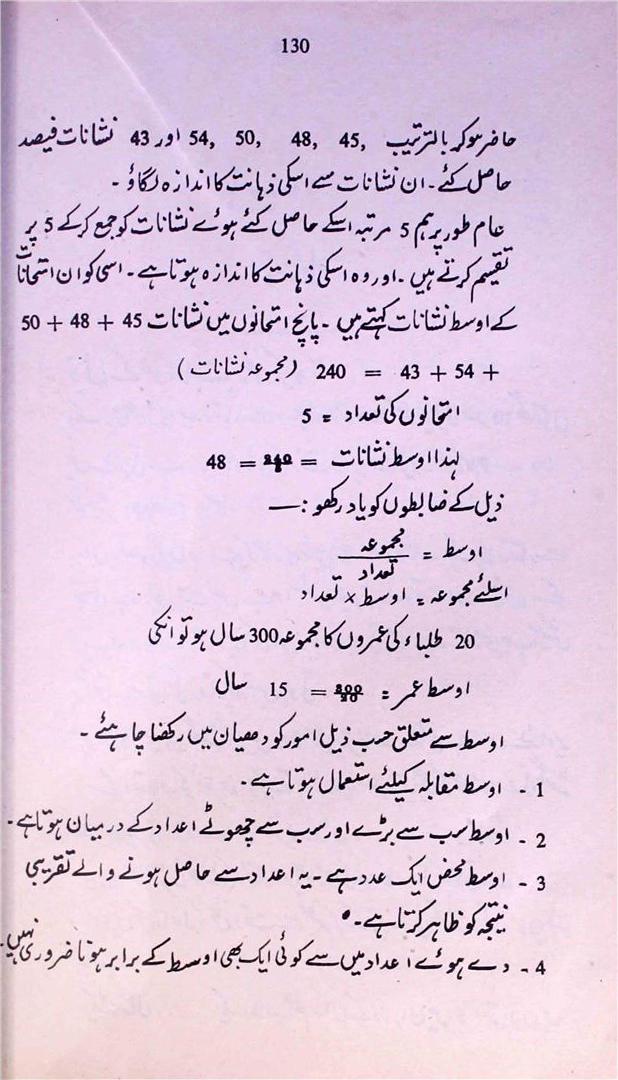 130
حاضر ہو کر بالترتیب 45, 48, 50, 54, اور 43 نشانات فیصد
حاصل کئے۔ ان نشانات سے اسکی ذہانت کا اندازہ لگاؤ ۔
عام طور پر ہم 5 مرتبہ اسکے حاصل کئے ہوئے نشانات کو جمع کرکے 5 پر
تقسیم کرتے ہیں ۔ اور وہ اسکی ذہانت کا اندازہ ہوتا ہے ۔ اسی کو ان امتحانات
کے اوسط نشانات کہتے ہیں ۔ پانچ امتحانوں میں نشانات 45 + 48 + 50
+ 54 + 43 = 240 (مجموعہ نشانات)
امتحانوں کی تعداد = 5
لہذا اوسط نشانات = 240/5 = 48
ذیل کے ضابطوں کو یاد رکھو :—
اوسط = مجموعہ / تعداد
اسلئے مجموعہ = اوسط × تعداد
20 طلباء کی عمروں کا مجموعہ 300 سال ہو تو انکی
اوسط عمر = 300/20 = 15 سال
اوسط سے متعلق حسب ذیل امور کو دھیان میں رکھنا چاہئے ۔
1 - اوسط مقابلہ کیلئے استعمال ہوتا ہے۔
2 - اوسط سب سے بڑے اور سب سے چھوٹے اعداد کے درمیان ہوتا ہے۔
3 - اوسط محض ایک عدد ہے ۔ یہ اعداد سے حاصل ہونے والے تقریبی
نتیجہ کو ظاہر کرتا ہے۔
4 - دے ہوئے اعداد میں سے کوئی ایک بھی اوسط کے برابر ہونا ضروری نہیں۔